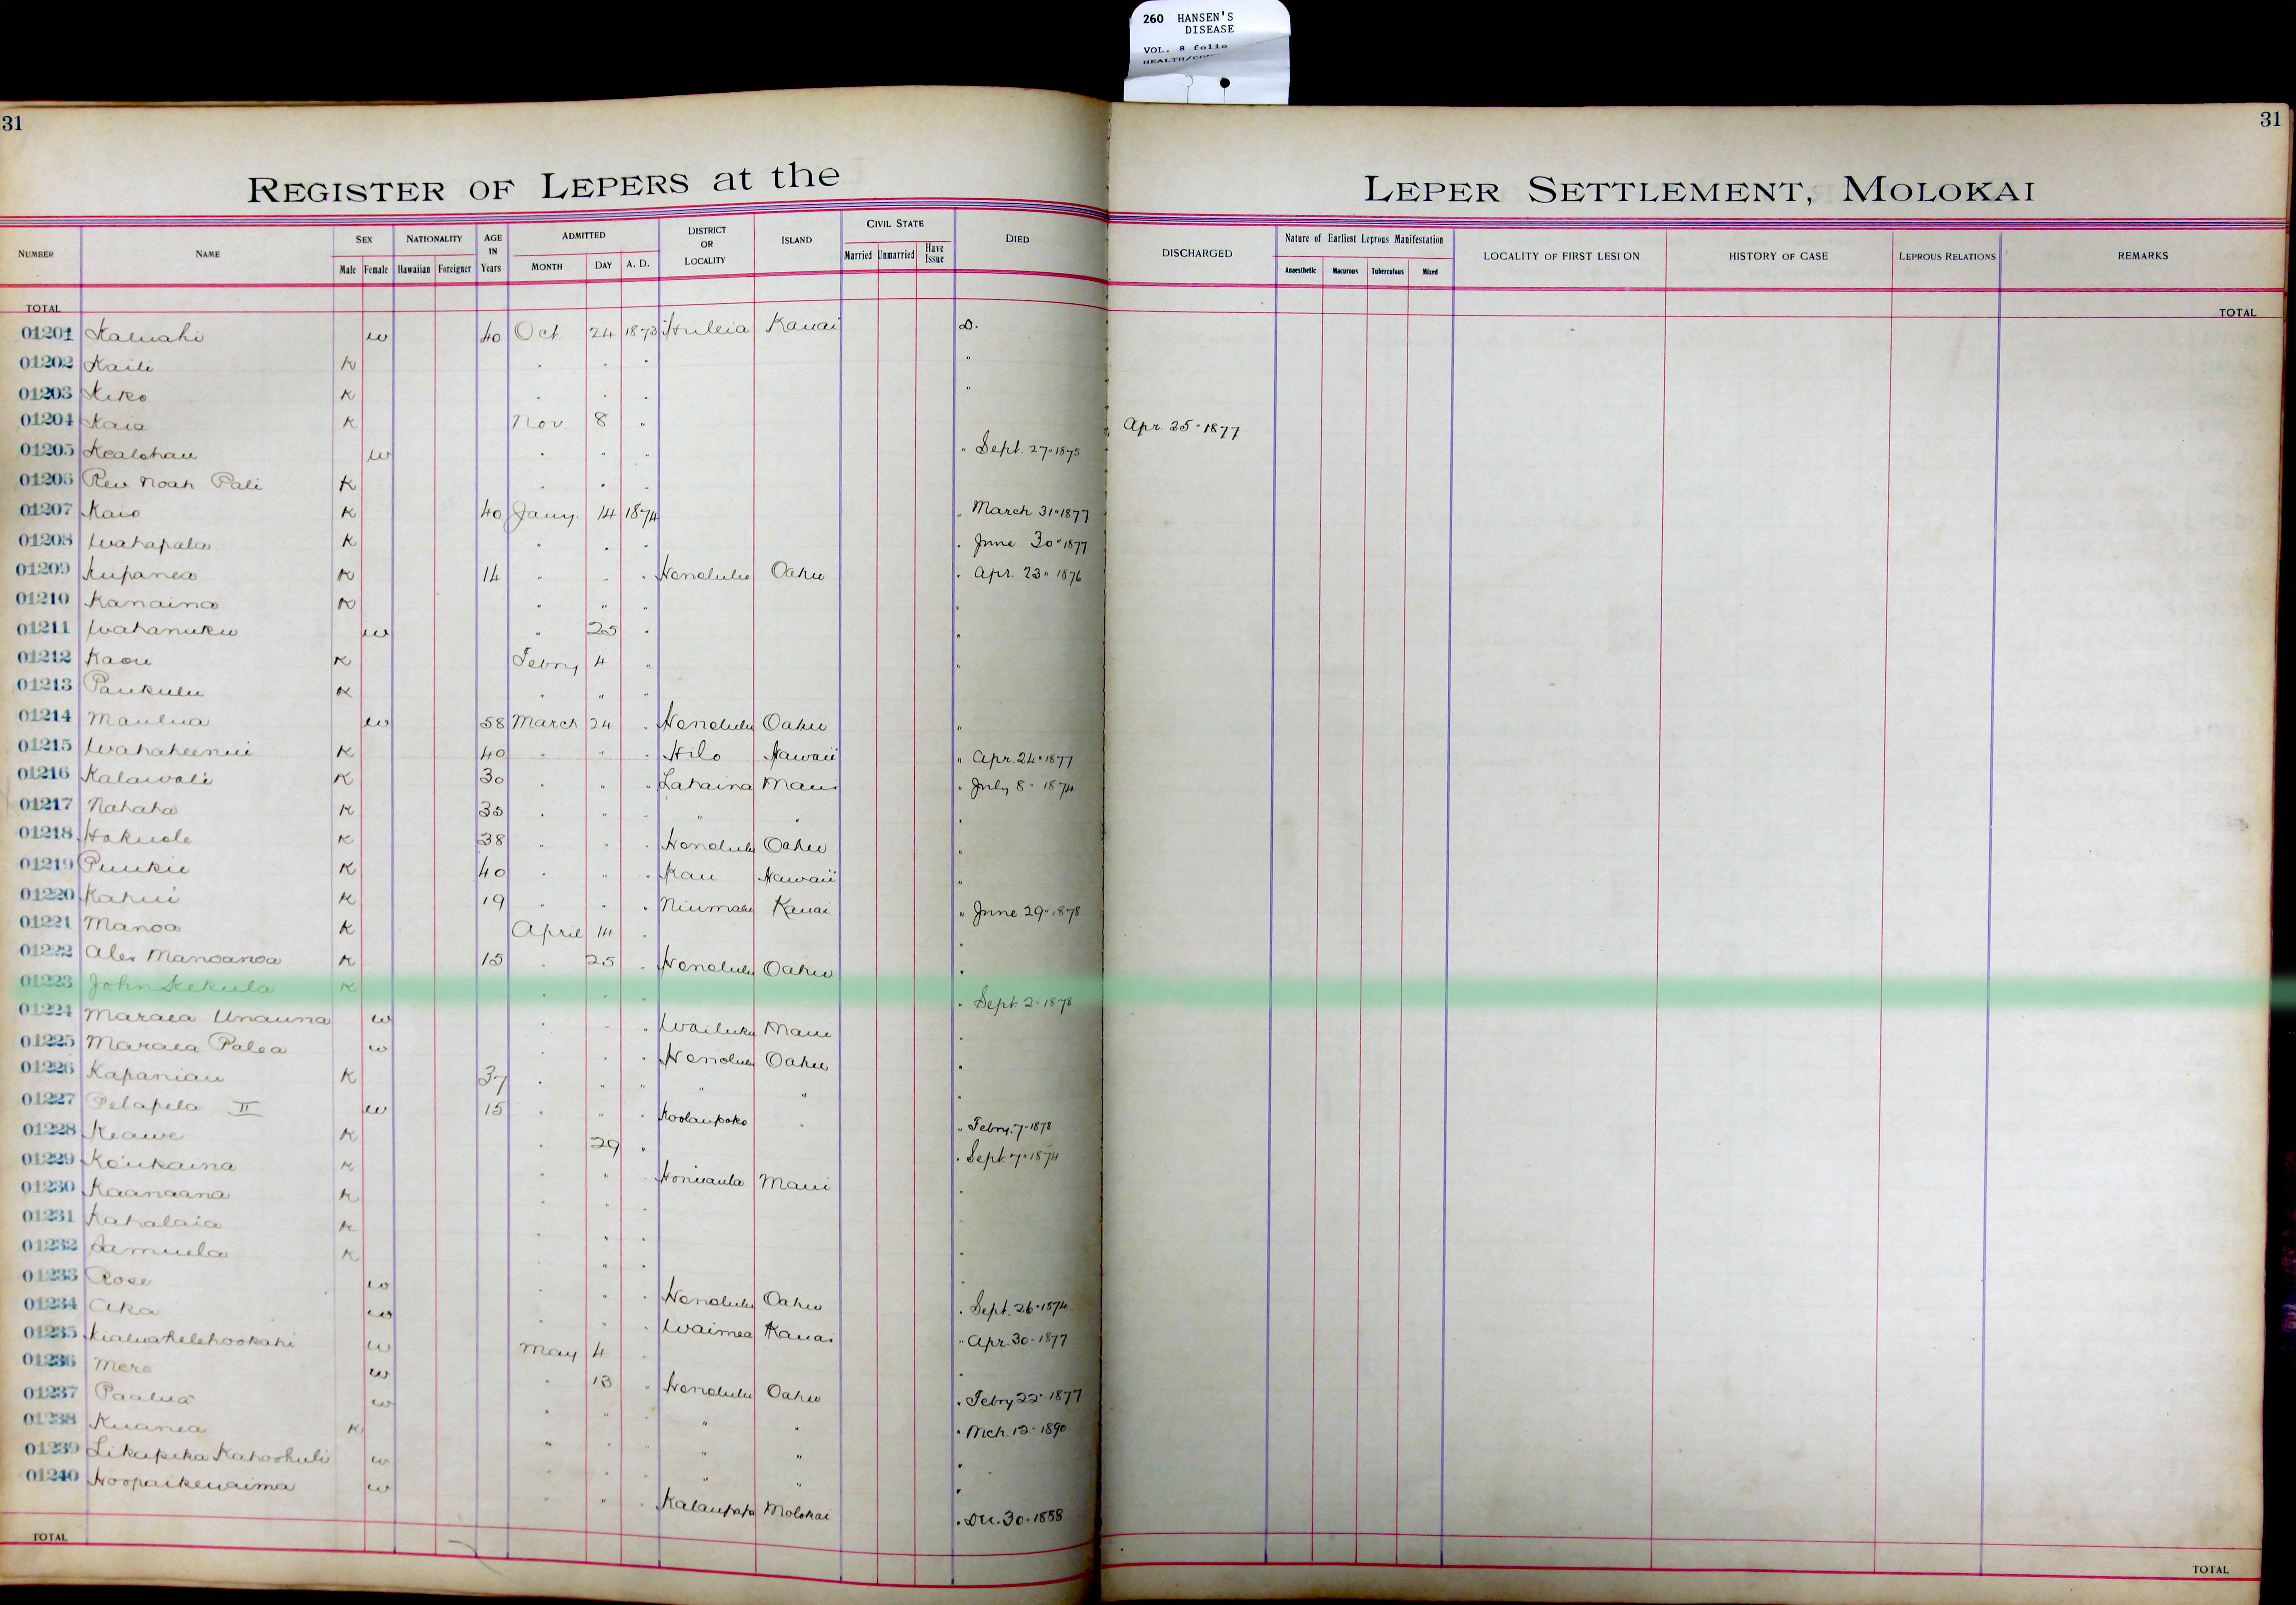 260 HANSEN'S
DISEASE
VOL. 8 folio
31 31
REGISTER OF LEPERS at the LEPER SETTLEMENT, MOLOKAI
NUMBER NAME SEX NATIONALITY AGE IN Years ADMITTED DISTRICT OR LOCALITY ISLAND CIVIL STATE DIED DISCHARGED Nature of Earliest Leprous Manifestation LOCALITY OF FIRST LESION HISTORY OF CASE LEPROUS RELATIONS REMARKS
Male Female Hawaiian Foreigner MONTH DAY A. D. Married Unmarried Have Issue Anaesthetic Macurous Tuberculous Mixed
TOTAL TOTAL
01201 Kaluahi w 40 Oct 24 1873 Huleia Kauai D.
01202 Kaili K " " " "
01203 Keko K " " " "
01204 Kaia K Nov 8 " " Apr. 25" 1877
01205 Kealohau w " " " " Sept. 27" 1875
01206 Rev Noah Pali K " " "
01207 Kaio K 40 Jany. 14 1874 " March 31" 1877
01208 Wahapala K " " " " June 30" 1877
01209 Kupanea K 14 " " " Honolulu Oahu " Apr. 23" 1876
01210 Kanaina K " " " "
01211 Wahanuku w " 25 " "
01212 Kaou K Febry 4 " "
01213 Paukulu K " " "
01214 Maulua w 58 March 24 " Honolulu Oahu "
01215 Wahaheenui K 40 " " " Hilo Hawaii " Apr. 24" 1877
01216 Kalawale K 30 " " " Lahaina Maui " July 8" 1874
01217 Nahaha K 35 " " " " " "
01218 Hokuole K 38 " " " Honolulu Oahu "
01219 Puukie K 40 " " " Kau Hawaii "
01220 Kahui K 19 " " " Niumalu Kauai " June 29" 1878
01221 Manoa K April 14 " "
01222 Alex Manoanoa K 15 " 25 " Honolulu Oahu "
01223 John Kekula K " " " " Sept. 2" 1878
01224 Maraea Unauna w " " " Wailuku Maui "
01225 Maraea Palea w " " " Honolulu Oahu "
01226 Kapaniau K 37 " " " " " "
01227 Pelapela II w 15 " " " Koolaupoko " " Febry. 7" 1878
01228 Keawe K " 29 " " Sept. 7" 1874
01229 Keukaina K " " " Honuaula Maui "
01230 Kaanaana K " " "
01231 Kahalaia K " " " "
01232 Samuela K " " "
01233 Rose w " " " Honolulu Oahu " Sept. 26" 1874
01234 Aka w " " " Waimea Kauai " Apr. 30" 1877
01235 w May 4 " "
01236 Mere w " 13 " Honolulu Oahu " Febry 22" 1877
01237 Paalua w " " " " " " Mch. 12" 1890
01238 Kuanea K " " " " "
01239 Likapeka Kahoohuli w " " " " " "
01240 Hoopaikewaima w " " " Kalaupapa Molokai " Dec. 30" 1888
TOTAL TOTAL